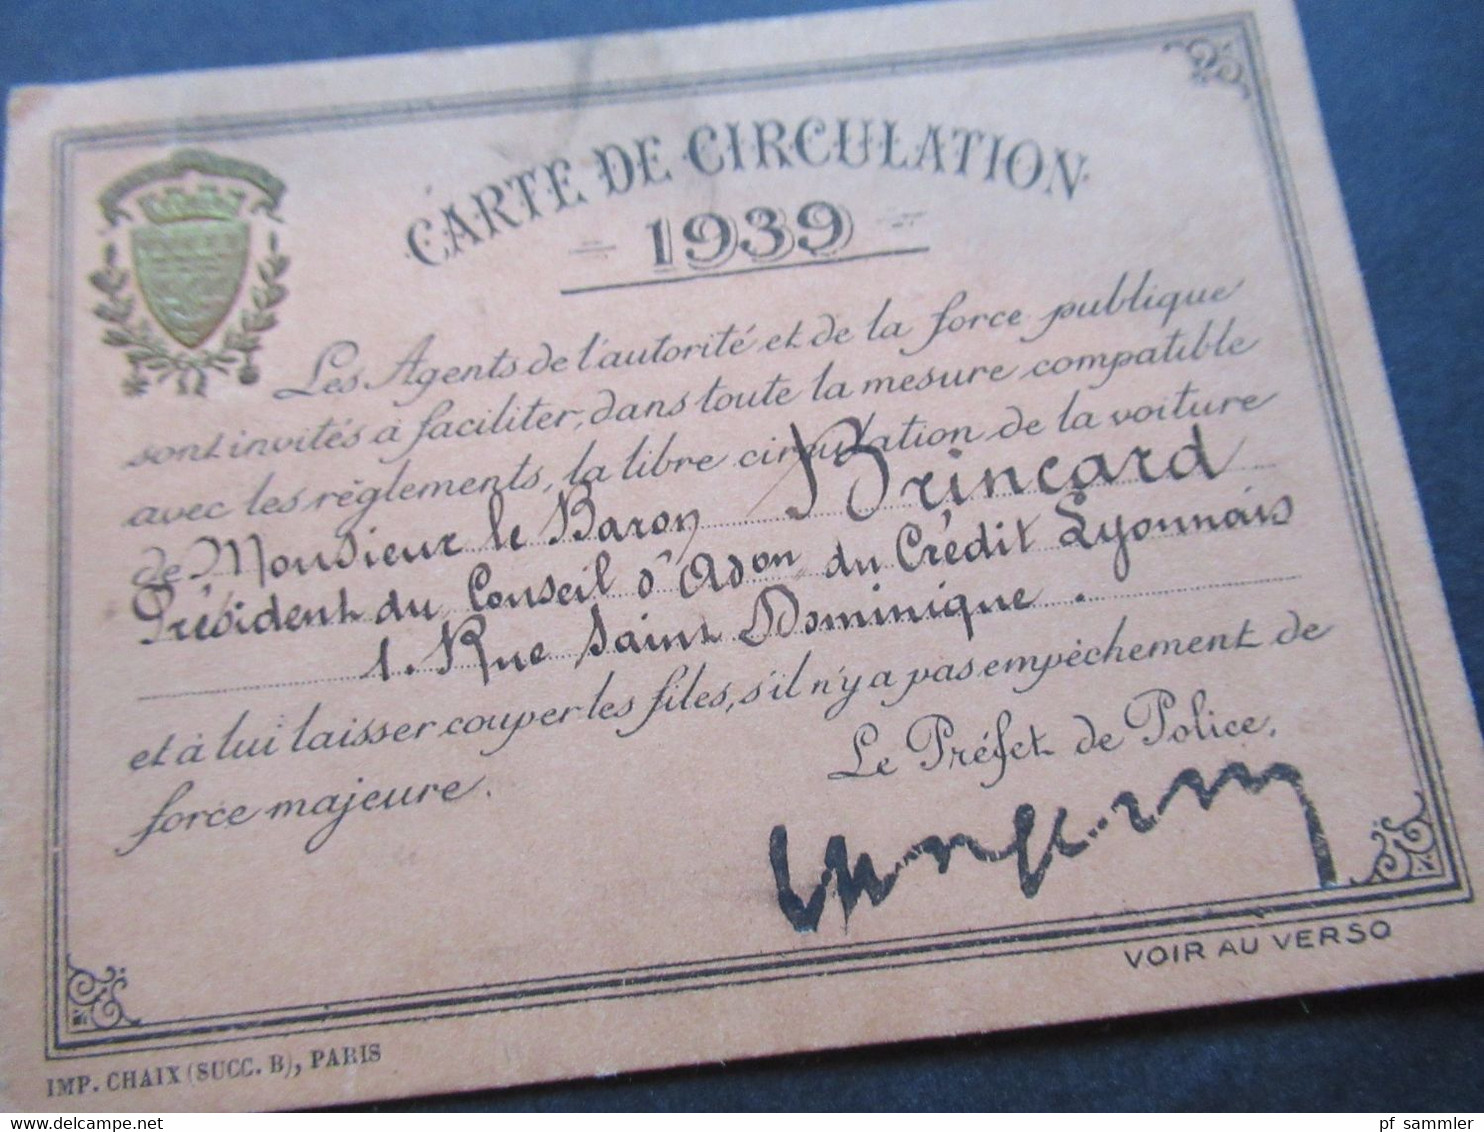 CARTE DE CIRCULATION
1939
Les Agents de l'autorité et de la force publique
sont invités à faciliter, dans toute la mesure compatible
avec les règlements, la libre circulation de la voiture
de Monsieur le Baron Brincard
Président du Conseil d'Adon du Crédit Lyonnais
1. Rue Saint Dominique.
et à lui laisser couper les files, s'il n'y a pas empêchement de
force majeure.
Le Préfet de Police,
VOIR AU VERSO
IMP. CHAIX (SUCC. B), PARIS
delcampe.net
pf_sammler